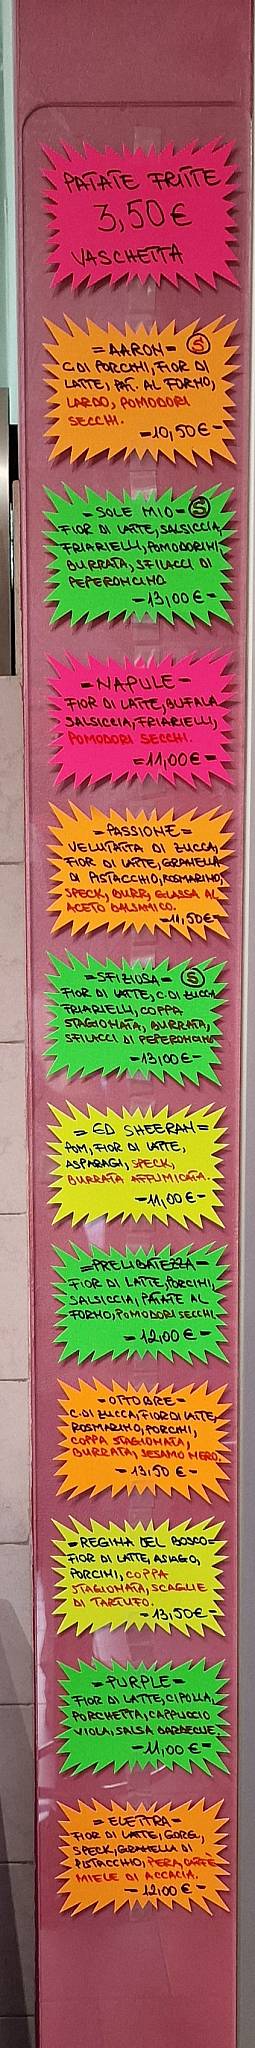 PATATE FRITTE
3,50 €
VASCHETTA
= AARON = S
C.DI PORCINI, FIOR DI
LATTE, PAT. AL FORNO,
LARDO, POMODORI
SECCHI.
-10,50€-
- SOLE MIO - S
FIOR DI LATTE, SALSICCIA,
FRIARIELLI, POMODORINI,
BURRATA, SFILACCI DI
PEPERONCINO
-13,00€-
- NAPULE -
FIOR DI LATTE, BUFALA,
SALSICCIA, FRIARIELLI,
POMODORI SECCHI.
=11,00€-
=PASSIONE=
VELLUTATA DI ZUCCA,
FIOR DI LATTE, GRANELLA
DI PISTACCHIO, ROSMARINO,
SPECK, BURR, GLASSA AL
ACETO BALSAMICO.
-11,50€-
-SFIZIOSA- S
FIOR DI LATTE, C.DI ZUCCA
FRIARIELLI, COPPA
STAGIONATA, BURRATA,
SFILACCI DI PEPERONCINO
-13,00€-
= ED SHEERAN=
POM, FIOR DI LATTE,
ASPARAGI, SPECK,
BURRATA AFFUMICATA.
-11,00€-
=PRELIBATEZZA=
FIOR DI LATTE, PORCINI,
SALSICCIA, PATATE AL
FORNO, POMODORI SECCHI
-12,00€-
-OTTOBRE-
C.DI ZUCCA, FIOR DI LATTE,
ROSMARINO, PORCINI,
COPPA STAGIONATA,
BURRATA, SESAMO NERO.
-13,50€-
-REGINA DEL BOSCO=
FIOR DI LATTE, ASIAGO,
PORCINI, COPPA
STAGIONATA, SCAGLIE
DI TARTUFO.
-13,50€-
-PURPLE-
FIOR DI LATTE, CIPOLLA,
PORCHETTA, CAPPUCCIO
VIOLA, SALSA BARBECUE.
-11,00€-
= ELETTRA=
FIOR DI LATTE, GORG,
SPECK, GRANELLA DI
PISTACCHIO, PERA,
MIELE DI ACACIA.
- 12,00€-